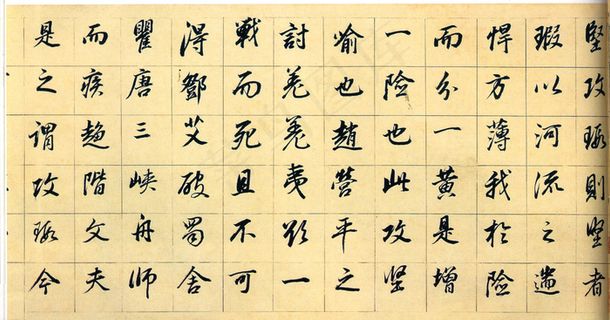 堅攻瑕則堅者
瑕以河流之湍
悍方薄我於險
而分一黃是增
一險也此攻堅
喻也趙營平之
討羌羌夷欲一
戰而死且不可
得鄧艾破蜀舍
瞿唐三峽舟師
而疾趨階文夫
是之謂攻瑕今